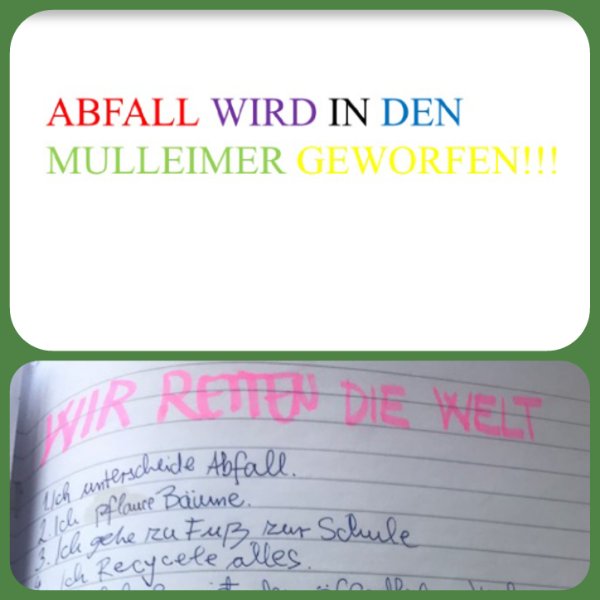 ABFALL WIRD IN DEN
MULLEIMER GEWORFEN!!!
WIR RETTEN DIE WELT
1. Ich unterscheide Abfall.
2. Ich pflance Bäume.
3. Ich gehe zu Fuß zur Schule
4. Ich Recycele alles.